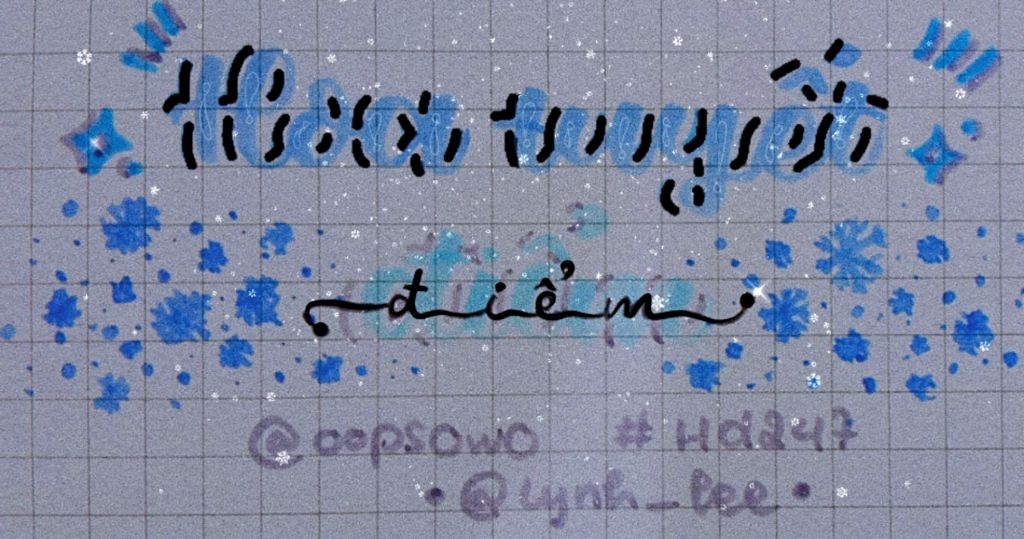 Hoa tuyết
điểm
@oopsowo #Hd247
@lynh_lee